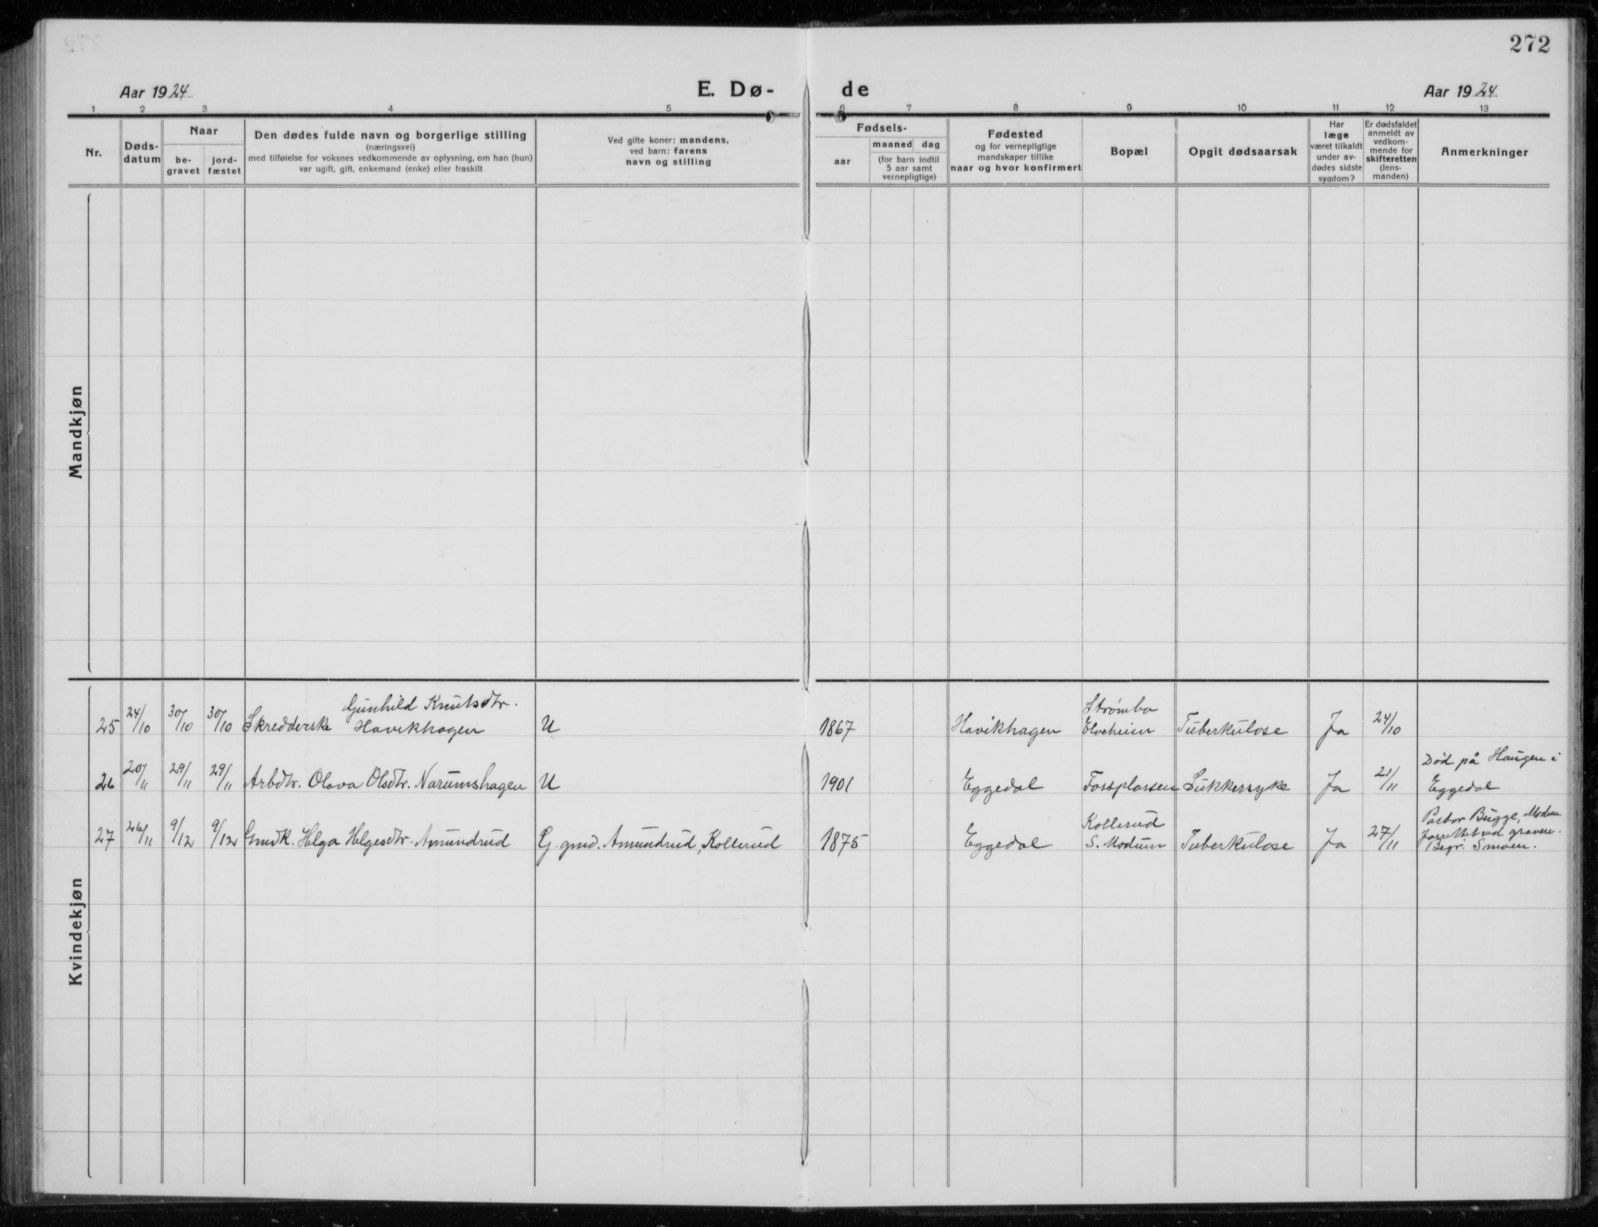 272
Aar 1924
E. Dø-
de
Aar 1924
1 2 3 4 5 6 7 8 9 10 11 12 13
Nr.
Døds-
datum
Naar
be-
gravet
jord-
fæstet
Den dødes fulde navn og borgerlige stilling
(næringsvei)
med tilføielse for voksnes vedkommende av oplysning, om han (hun)
var ugift, gift, enkemand (enke) eller fraskilt
Ved gifte koner: mandens,
ved barn: farens
navn og stilling
Fødsels-
aar
maaned dag
(for barn indtil
5 aar samt
vernepligtige)
Fødested
og for vernepligtige
mandskaper tillike
naar og hvor konfirmert
Bopæl
Opgit dødsaarsak
Har
læge
været tilkaldt
under av-
dødes sidste
sygdom?
Er dødsfaldet
anmeldt av
vedkom-
mende for
skifteretten
(lens-
manden)
Anmerkninger
Mandkjøn
Kvindekjøn
Gunhild Knutsdtr.
25 24/10 30/10 30/10 Skredderske Havikhagen U 1867 Havikhagen Strømbo
Elveheim Tuberkulose Ja 24/10
26 20/11 29/11 29/11 Arbdtr. Olava Olsdtr. Narumshagen U 1901 Eggedal Fossplassen Sukkersyke Ja 21/11 Død på Haugen i
Eggedal
27 26/11 9/12 9/12 Gmdk. Helga Helgesdtr. Amundrud G. gmd. Amundrud, Kollerud 1875 Eggedal Kollerud
S. Modum Tuberkulose Ja 27/11 Pastor Bugge, Modum
forrettet ved graven.
Begr. Smoen.